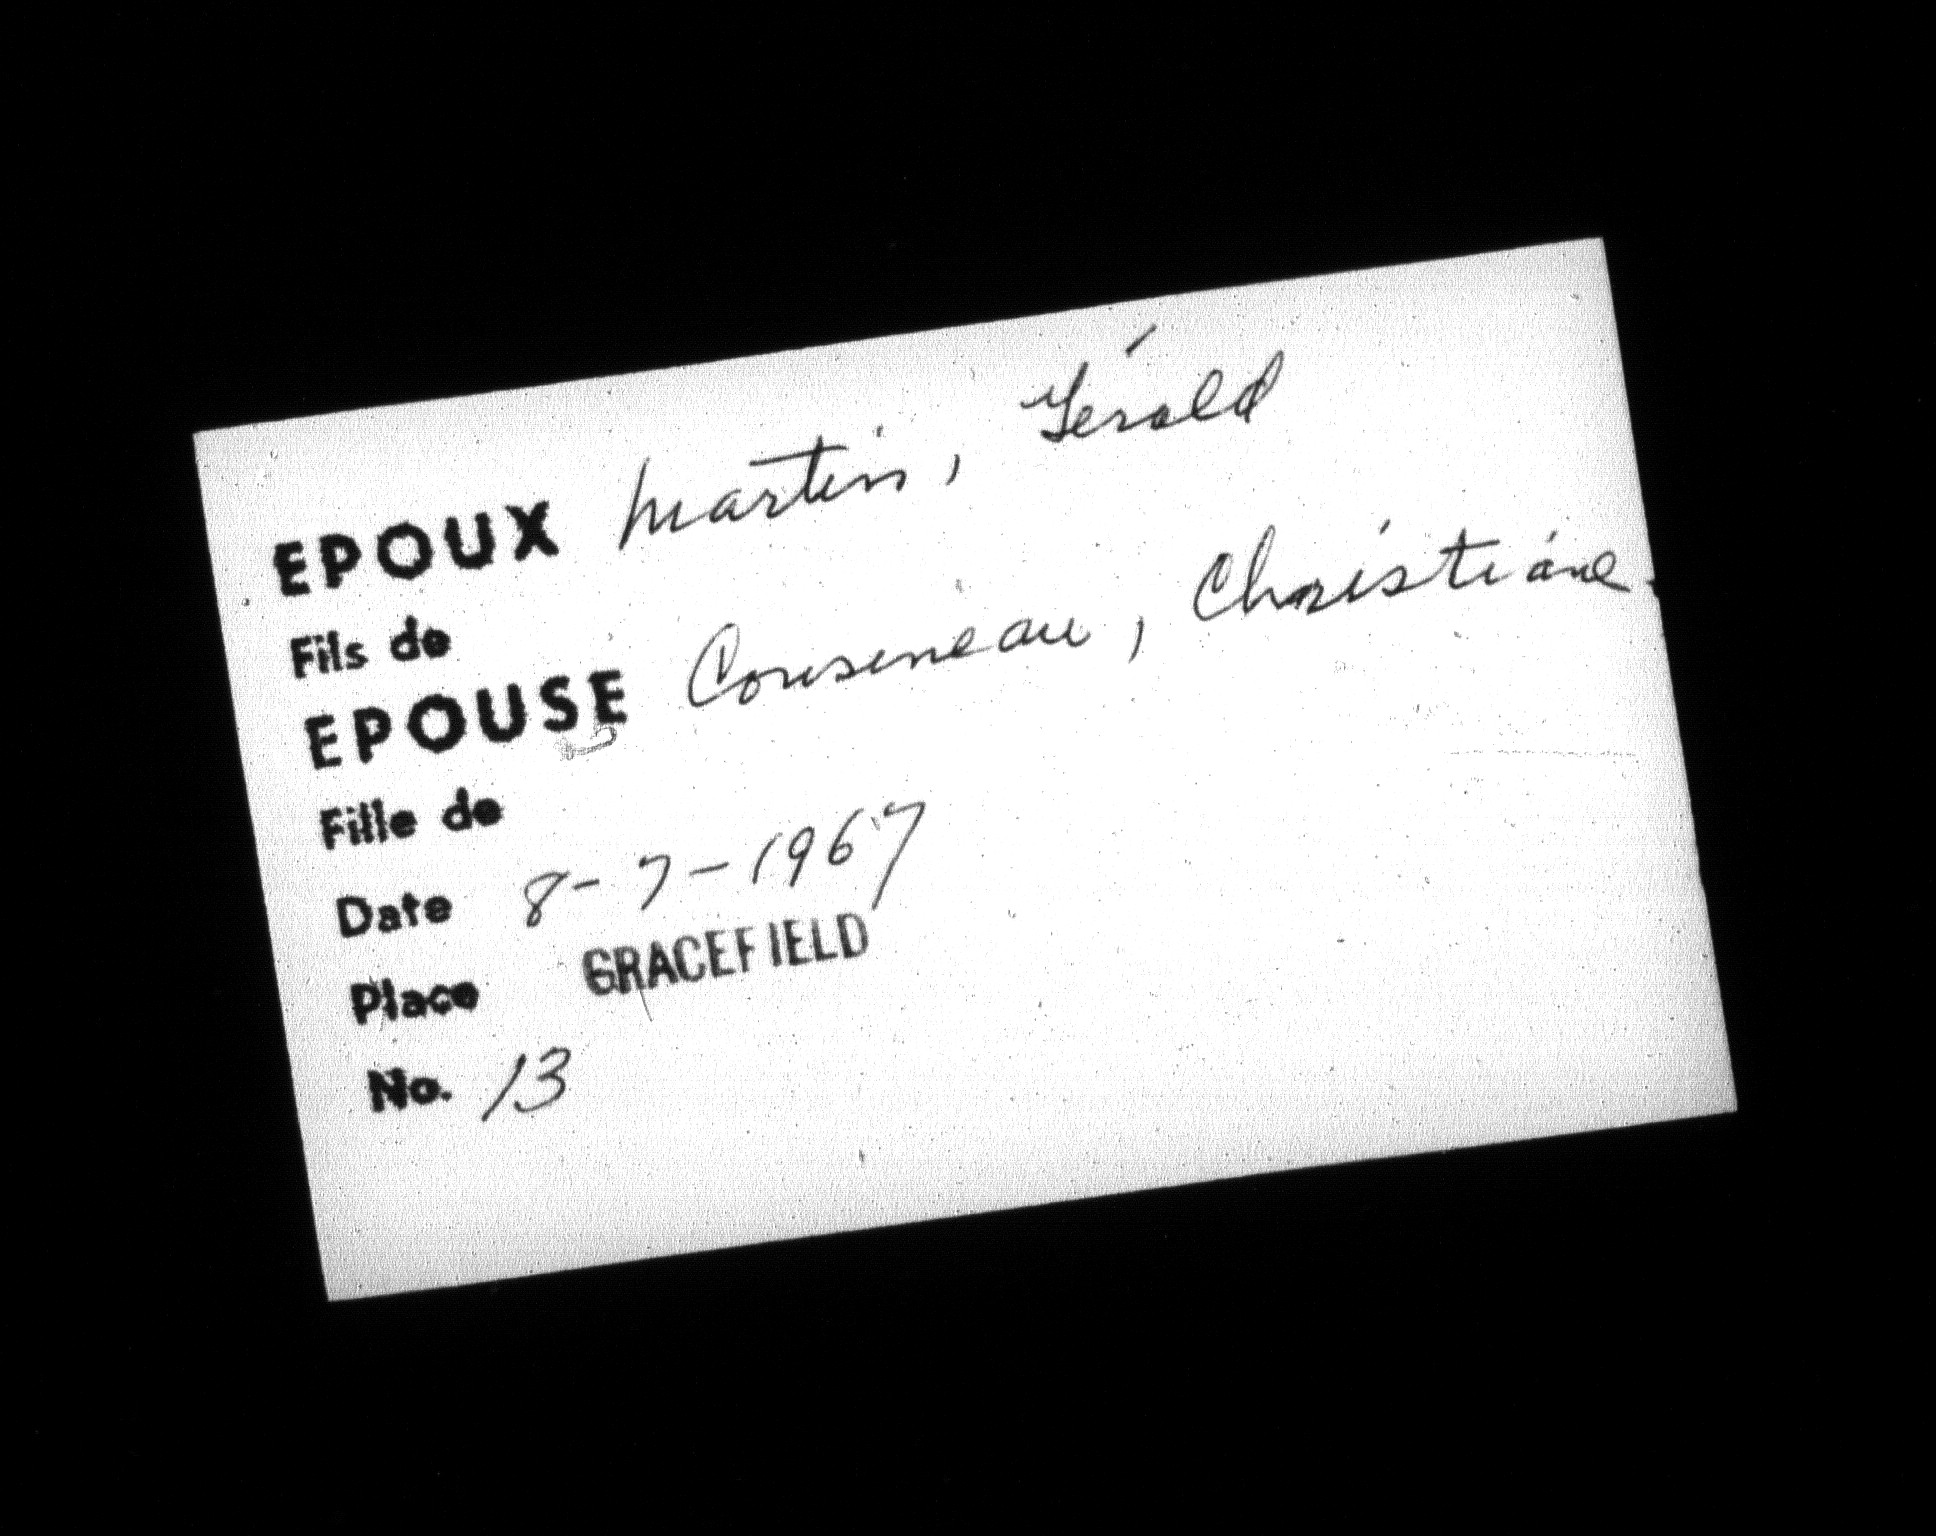 EPOUX Martin, Gérald
Fils de
EPOUSE Cousineau, Christiane
Fille de
Date 8-7-1967
Place GRACEFIELD
No. 13